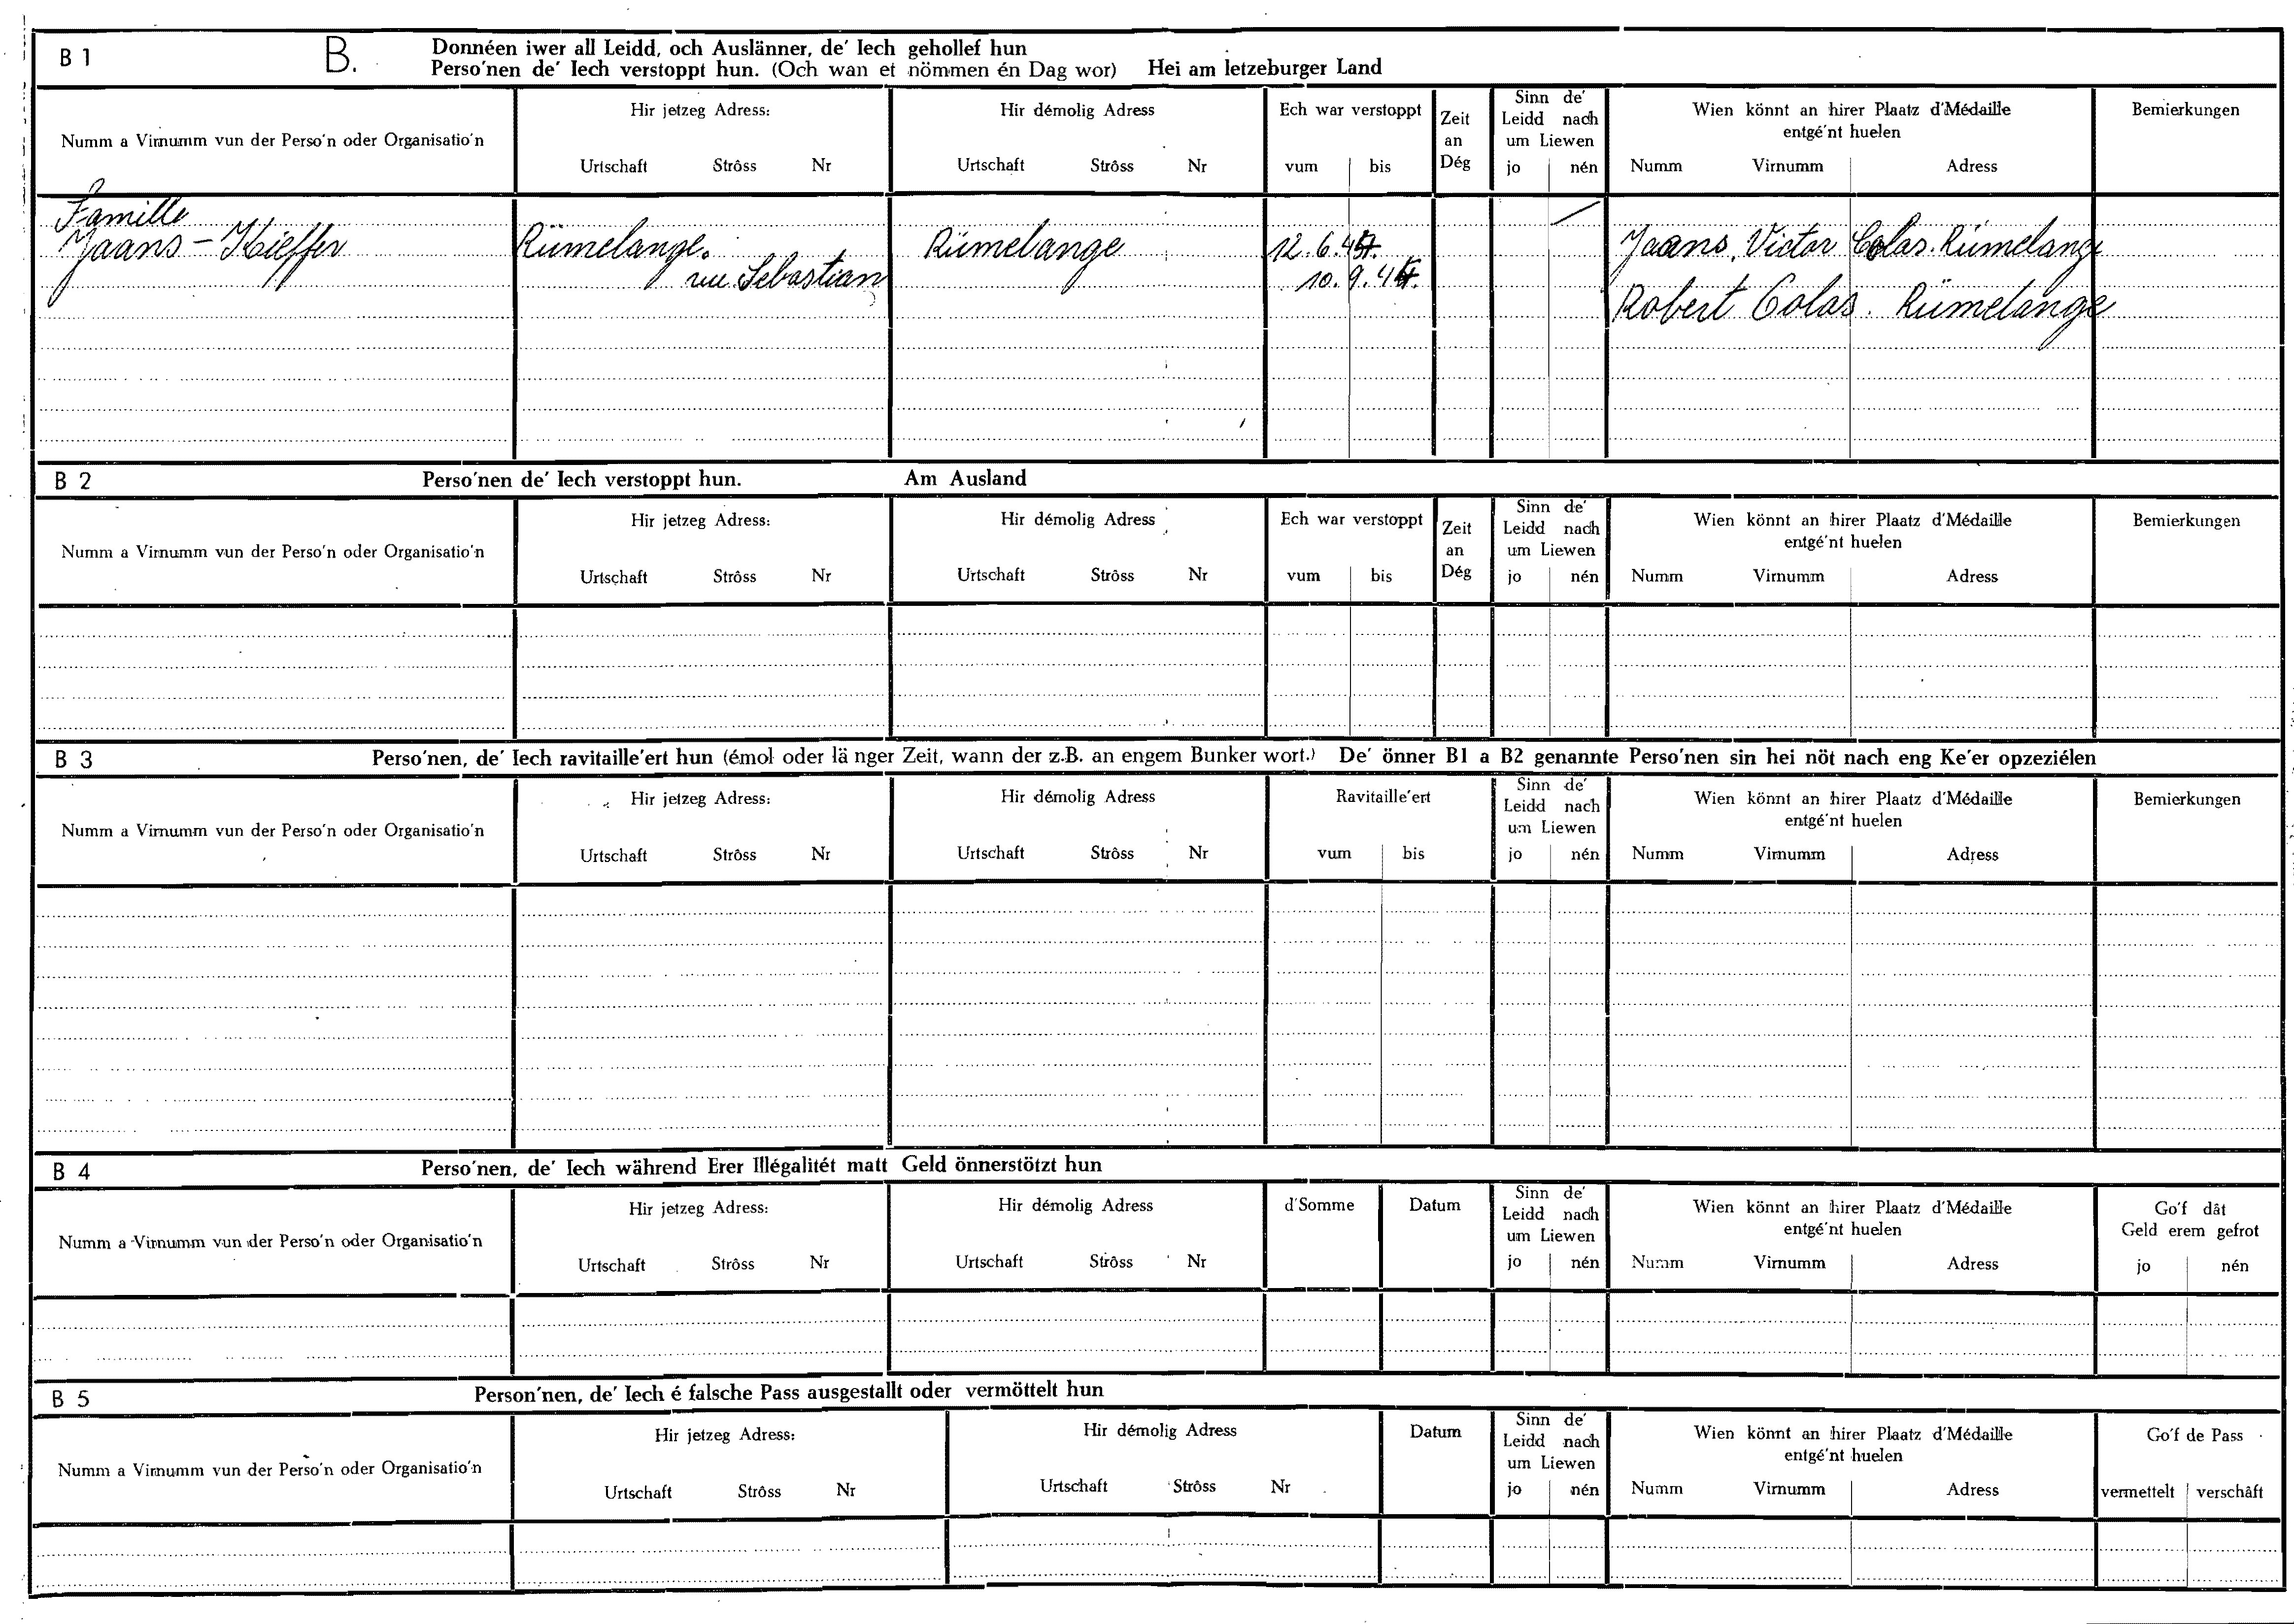 B 1 B. Donnéen iwer all Leidd, och Auslänner, de' Iech gehollef hun
Perso'nen de' Iech verstoppt hun. (Och wan et nömmen én Dag wor) Hei am letzeburger Land
Numm a Virnumm vun der Perso'n oder Organisatio'n
Hir jetzeg Adress:
Urtschaft Strôss Nr
Hir démolig Adress
Urtschaft Strôss Nr
Ech war verstoppt
vum bis
Zeit
an
Dég
Sinn de'
Leidd nach
um Liewen
jo nén
Wien könnt an hirer Plaatz d'Médaille
entgé'nt huelen
Numm Virnumm Adress
Bemierkungen
Famille
Jaans - Kieffer Rümelange. Rümelange 12.6.44. Jaans, Victor Colas. Rümelange
rue Sebastian 10.9.44.
Robert Colas. Rümelange
B 2 Perso'nen de' Iech verstoppt hun. Am Ausland
Numm a Virnumm vun der Perso'n oder Organisatio'n
Hir jetzeg Adress:
Urtschaft Strôss Nr
Hir démolig Adress
Urtschaft Strôss Nr
Ech war verstoppt
vum bis
Zeit
an
Dég
Sinn de'
Leidd nach
um Liewen
jo nén
Wien könnt an hirer Plaatz d'Médaille
entgé'nt huelen
Numm Virnumm Adress
Bemierkungen
B 3 Perso'nen, de' Iech ravitaille'ert hun (émol oder länger Zeit, wann der z.B. an engem Bunker wort.) De' önner B1 a B2 genannte Perso'nen sin hei nöt nach eng Ke'er opzeziélen
Numm a Virnumm vun der Perso'n oder Organisatio'n
Hir jetzeg Adress:
Urtschaft Strôss Nr
Hir démolig Adress
Urtschaft Strôss Nr
Ravitaille'ert
vum bis
Sinn de'
Leidd nach
um Liewen
jo nén
Wien könnt an hirer Plaatz d'Médaille
entgé'nt huelen
Numm Virnumm Adress
Bemierkungen
B 4 Perso'nen, de' Iech während Erer Illégalitét matt Geld önnerstötzt hun
Numm a Virnumm vun der Perso'n oder Organisatio'n
Hir jetzeg Adress:
Urtschaft Strôss Nr
Hir démolig Adress
Urtschaft Strôss Nr
d'Somme
Datum
Sinn de'
Leidd nach
um Liewen
jo nén
Wien könnt an hirer Plaatz d'Médaille
entgé'nt huelen
Numm Virnumm Adress
Go'f dât
Geld erem gefrot
jo nén
B 5 Person'nen, de' Iech é falsche Pass ausgestallt oder vermöttelt hun
Numm a Virnumm vun der Perso'n oder Organisatio'n
Hir jetzeg Adress:
Urtschaft Strôss Nr
Hir démolig Adress
Urtschaft Strôss Nr
Datum
Sinn de'
Leidd nach
um Liewen
jo nén
Wien könnt an hirer Plaatz d'Médaille
entgé'nt huelen
Numm Virnumm Adress
Go'f de Pass
vermettelt verschâft